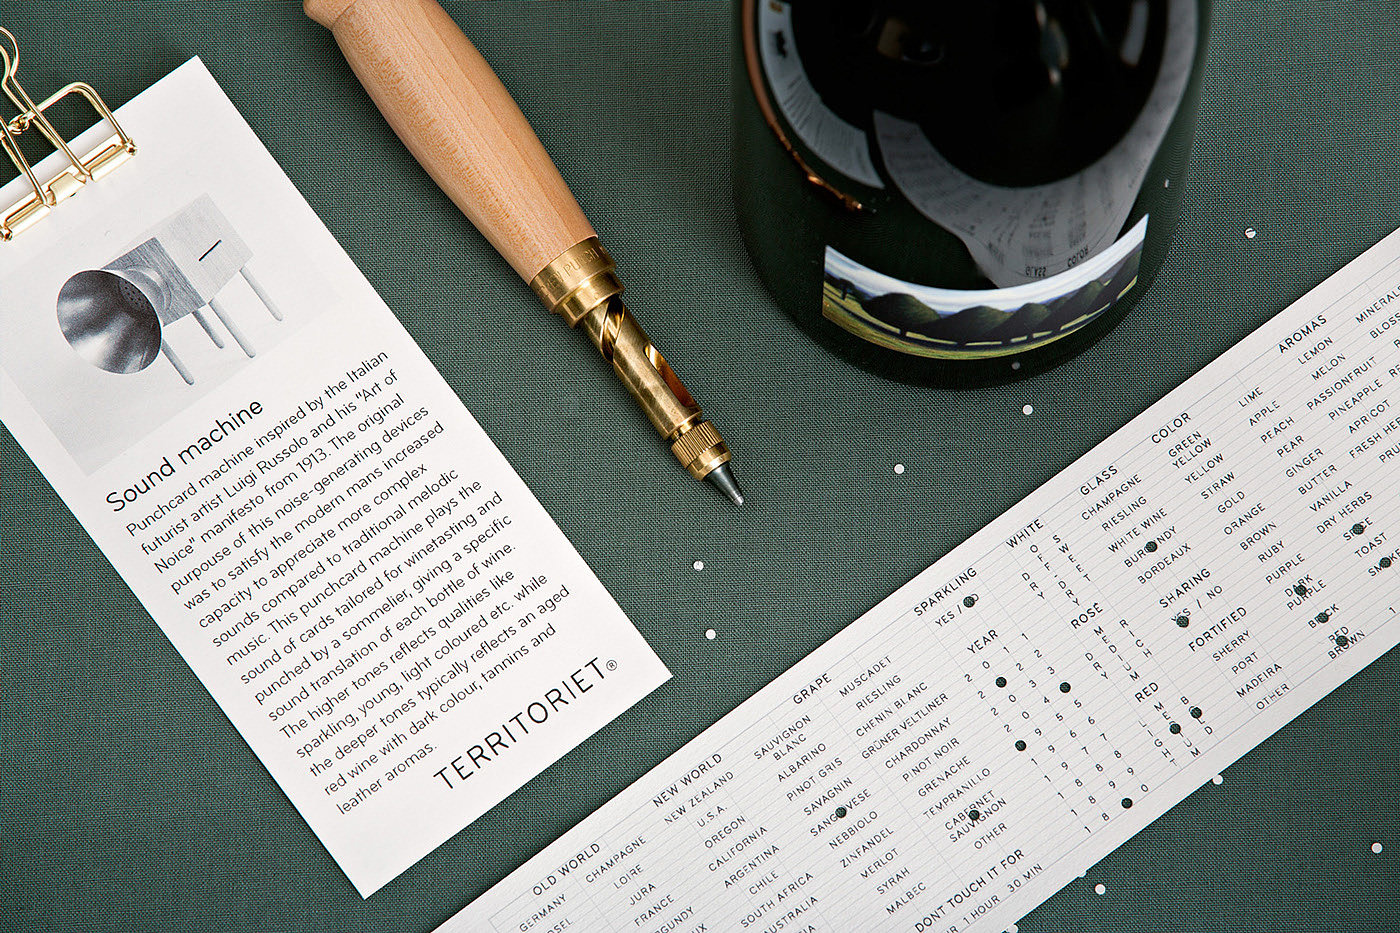 Sound machine
Punchcard machine inspired by the Italian
futurist artist Luigi Russolo and his "Art of
Noice" manifesto from 1913. The original
purpouse of this noise-generating devices
was to satisfy the modern mans increased
capasity to appreciate more complex
sounds compared to traditional melodic
music. This punchcard machine plays the
sound of cards tailored for winetasting and
punched by a sommelier, giving a specific
sound translation of each bottle of wine.
The higher tones reflects qualities like
sparkling, young, light coloured etc. while
the deeper tones typically reflects an aged
red wine with dark colour, tannins and
leather aromas.
TERRITORIET®
OLD WORLD
GERMANY
CHAMPAGNE
LOIRE
JURA
FRANCE
NEW WORLD
NEW ZEALAND
U.S.A.
OREGON
CALIFORNIA
ARGENTINA
CHILE
SOUTH AFRICA
GRAPE
SAUVIGNON
BLANC
ALBARINO
PINOT GRIS
SAVAGNIN
SANGIOVESE
NEBBIOLO
ZINFANDEL
MERLOT
SYRAH
MALBEC
MUSCADET
RIESLING
CHENIN BLANC
GRÜNER VELTLINER
CHARDONNAY
PINOT NOIR
GRENACHE
TEMPRANILLO
CABERNET
SAUVIGNON
OTHER
DON'T TOUCH IT FOR
1 HOUR 30 MIN
SPARKLING
YES / NO
YEAR
2 0 1 1
WHITE
DRY
OFF DRY
SWEET
ROSE
DRY
MEDIUM
RICH
RED
LIGHT
MEDIUM
BOLD
GLASS
CHAMPAGNE
RIESLING
WHITE WINE
BURGUNDY
BORDEAUX
SHARING
YES / NO
FORTIFIED
SHERRY
PORT
MADEIRA
OTHER
COLOR
GREEN
YELLOW
YELLOW
STRAW
GOLD
ORANGE
BROWN
RUBY
PURPLE
DARK
PURPLE
BRICK
RED
BROWN
AROMAS
LIME
LEMON
APPLE
MELON
PEACH
PASSIONFRUIT
PEAR
PINEAPPLE
GINGER
BUTTER
VANILLA
DRY HERBS
SPICE
TOAST
GLASS
COLOR